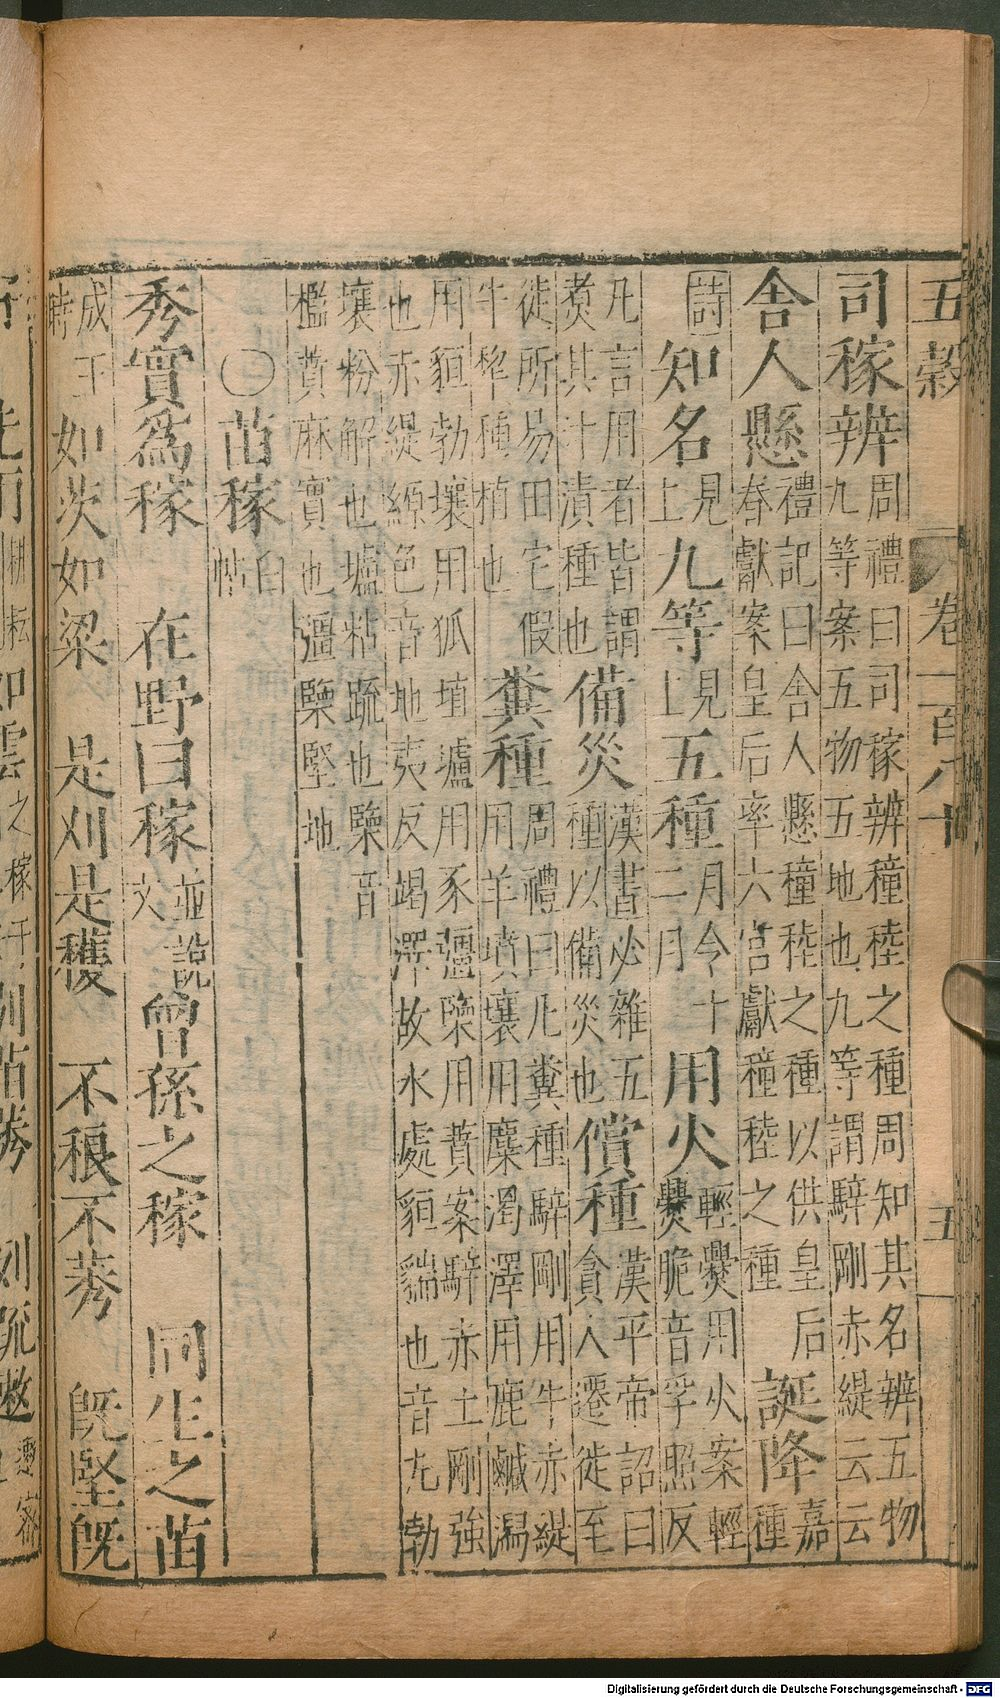 五穀 卷一百八十 五
司稼辨周禮曰司稼辨穜稑之種周知其名辨五物九等案五物五地也九等謂騂剛赤緹云云
舍人懸禮記曰舍人懸穜稑之種以供皇后春獻案皇后率六宮獻穜稑之種誕降嘉種
詩知名見上九等見上五種月令十二月用火輕㸑用火案輕㸑脆音孚照反
凡言用者皆謂煮其汁漬種也備災漢書必雜五種以備災也償種漢平帝詔曰貪人遷徙至
徒所易田宅假牛犂種植也糞種周禮曰凡糞種騂剛用牛赤緹用羊墳壤用麋濁澤用鹿鹹潟
用貆勃壤用狐埴壚用豕彊㯺用蕡案騂赤土剛強也赤緹縓色音地夷反竭澤故水處貆貒也音尢勃
壤粉解也壚粘疏也㯺音檻蕡麻實也彊㯺堅地
〇苗稼白帖
秀實為稼 在野曰稼並說文曾孫之稼 同生之苗
成王時如茨如梁 是刈是穫 不稂不莠 旣堅旣
Digitalisierung gefördert durch die Deutsche Forschungsgemeinschaft - DFG